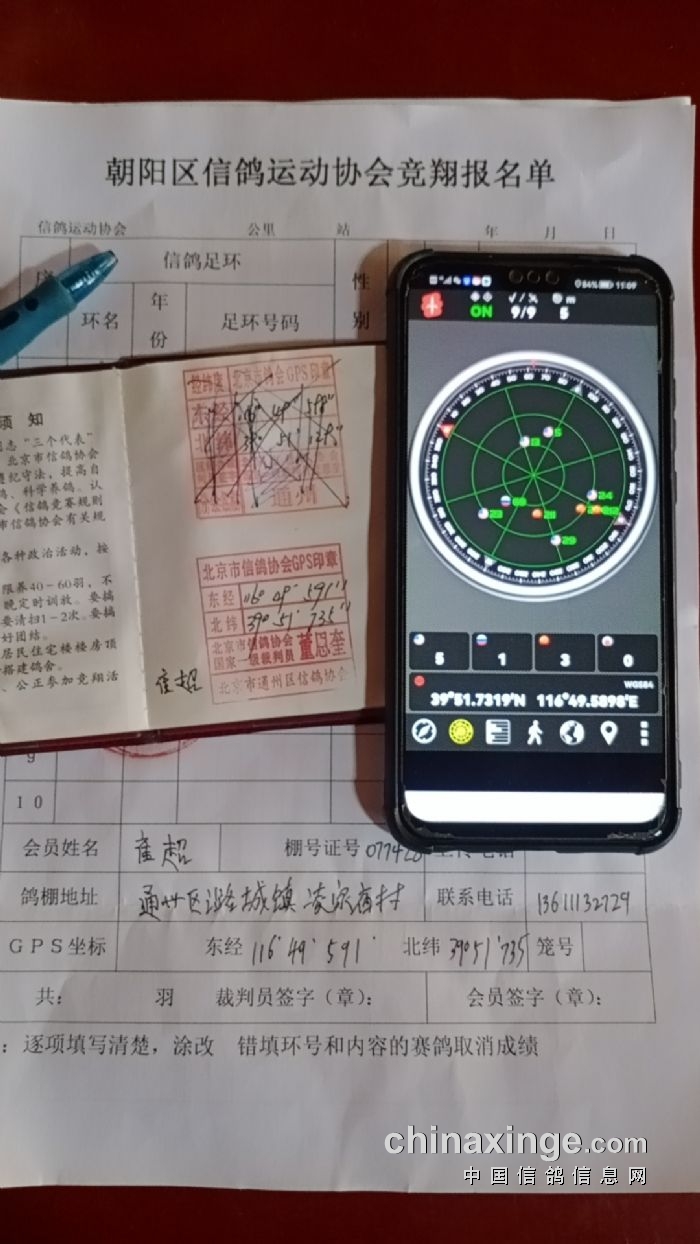 朝阳区信鸽运动协会竞翔报名单
信鸽运动协会 公里 站 年 月 日
序 信鸽足环 性
环名 年份 足环号码 别
须 知
"三个代表"
北京市信鸽协会
遵纪守法，提高自
科学养鸽。认
会《信鸽竞赛规则
市信鸽协会有关规
各种政治活动，按
限养40-60羽，不
晚定时训放。要搞
要清扫1-2次。要搞
好团结。
居民住宅楼楼房顶
搭建鸽舍。
、公正参加竞翔活
经纬度 北京市鸽会GPS印章
东经
北纬
通州
北京市信鸽协会GPS印章
东经 116° 49' 591"
北纬 39° 51' 735"
北京市信鸽协会
国家一级裁判员 董恩奎
北京市通州区信鸽协会
崔超
84% 11:09
ON 9/9 5
13 5
24
23 211 212
29
5 1 3 0
WGS84
39°51.7319'N 116°49.5898'E
9
10
会员姓名 崔超 棚号证号
鸽棚地址 通州区潞城镇 村 联系电话 13611132729
GPS坐标 东经 116° 49' 591 北纬 39°51'735 笼号
共： 羽 裁判员签字（章）： 会员签字（章）：
：逐项填写清楚，涂改 错填环号和内容的赛鸽取消成绩
chinaxinge.com
中国信鸽信息网